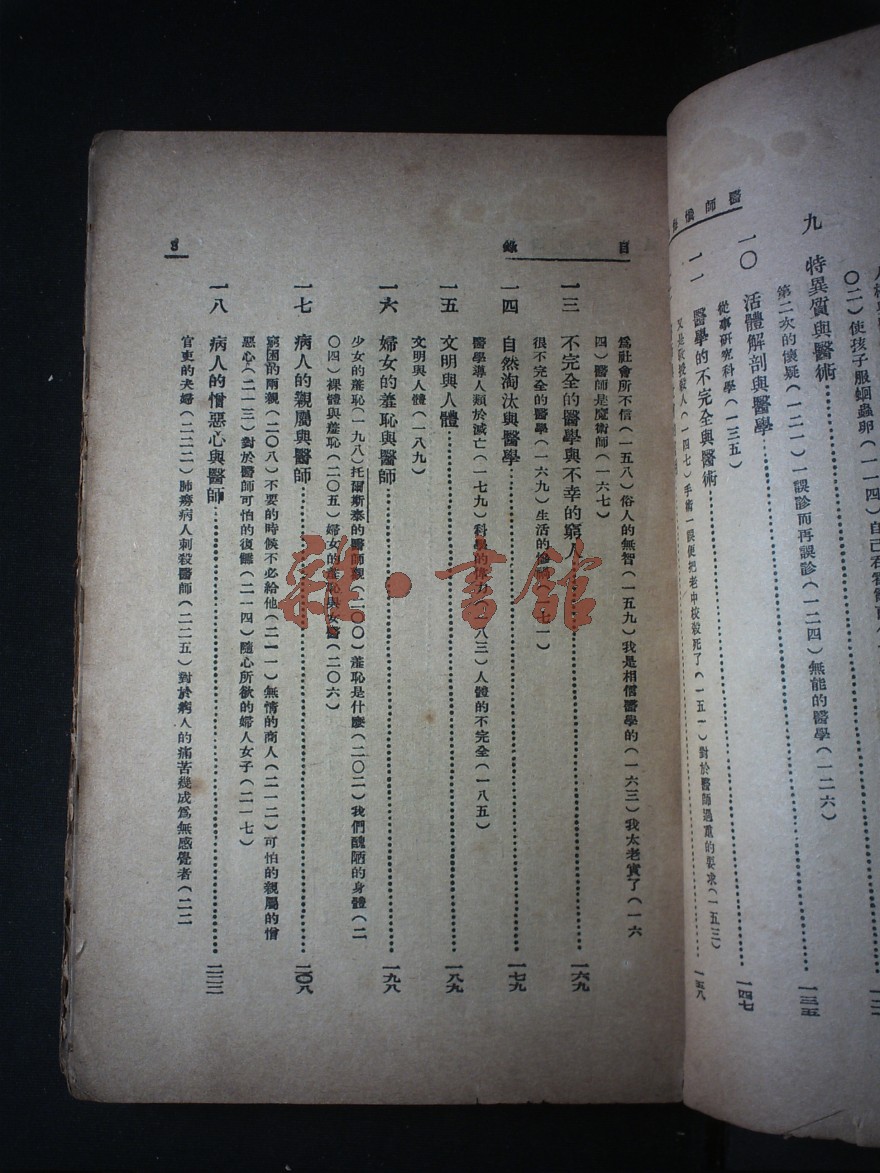 醫師懺
人
〇二）使孩子服蛔蟲卵（一一四）自己
九　特異質與醫術…………一三五
第二次的懷疑（一二一）一誤診而再誤診（一二四）無能的醫學（一二六）
一〇　活體解剖與醫學…………一四七
從事研究科學（一三五）
一一　醫學的不完全與醫術…………一五八
又是我授殺人（一四七）手術一誤便把老中校殺死了（一五一）對於醫師過重的要求（一五三）
目錄
爲社會所不信（一五八）俗人的無智（一五九）我是相信醫學的（一六三）我太老實了（一六
四）醫師是魔術師（一六七）
一三　不完全的醫學與不幸的窮人…………一六九
很不完全的醫學（一六九）生活的慘
一四　自然淘汰與醫學…………一七九
醫學導人類於滅亡（一七九）科學的偉力（一八三）人體的不完全（一八五）
一五　文明與人體…………一八九
文明與人體（一八九）
一六　婦女的羞恥與醫師…………一九八
少女的羞恥（一九八）托爾斯泰的醫師觀（二〇〇）羞恥是什麼（二〇二）我們醜陋的身體（二
〇四）裸體與羞恥（二〇五）婦女的羞恥與女醫（二〇六）
一七　病人的親屬與醫師…………二〇八
窮困的兩親（二〇八）不要的時候不必給他（二一一）無情的商人（二一二）可怕的親屬的憎
惡心（二一三）對於醫師可怕的復讎（二一四）隨心所欲的婦人女子（二一七）
一八　病人的憎惡心與醫師…………二二二
官吏的夫婦（二二二）肺癆病人刺殺醫師（二二五）對於病人的痛苦幾成爲無感覺者（二二
3
雜·書館